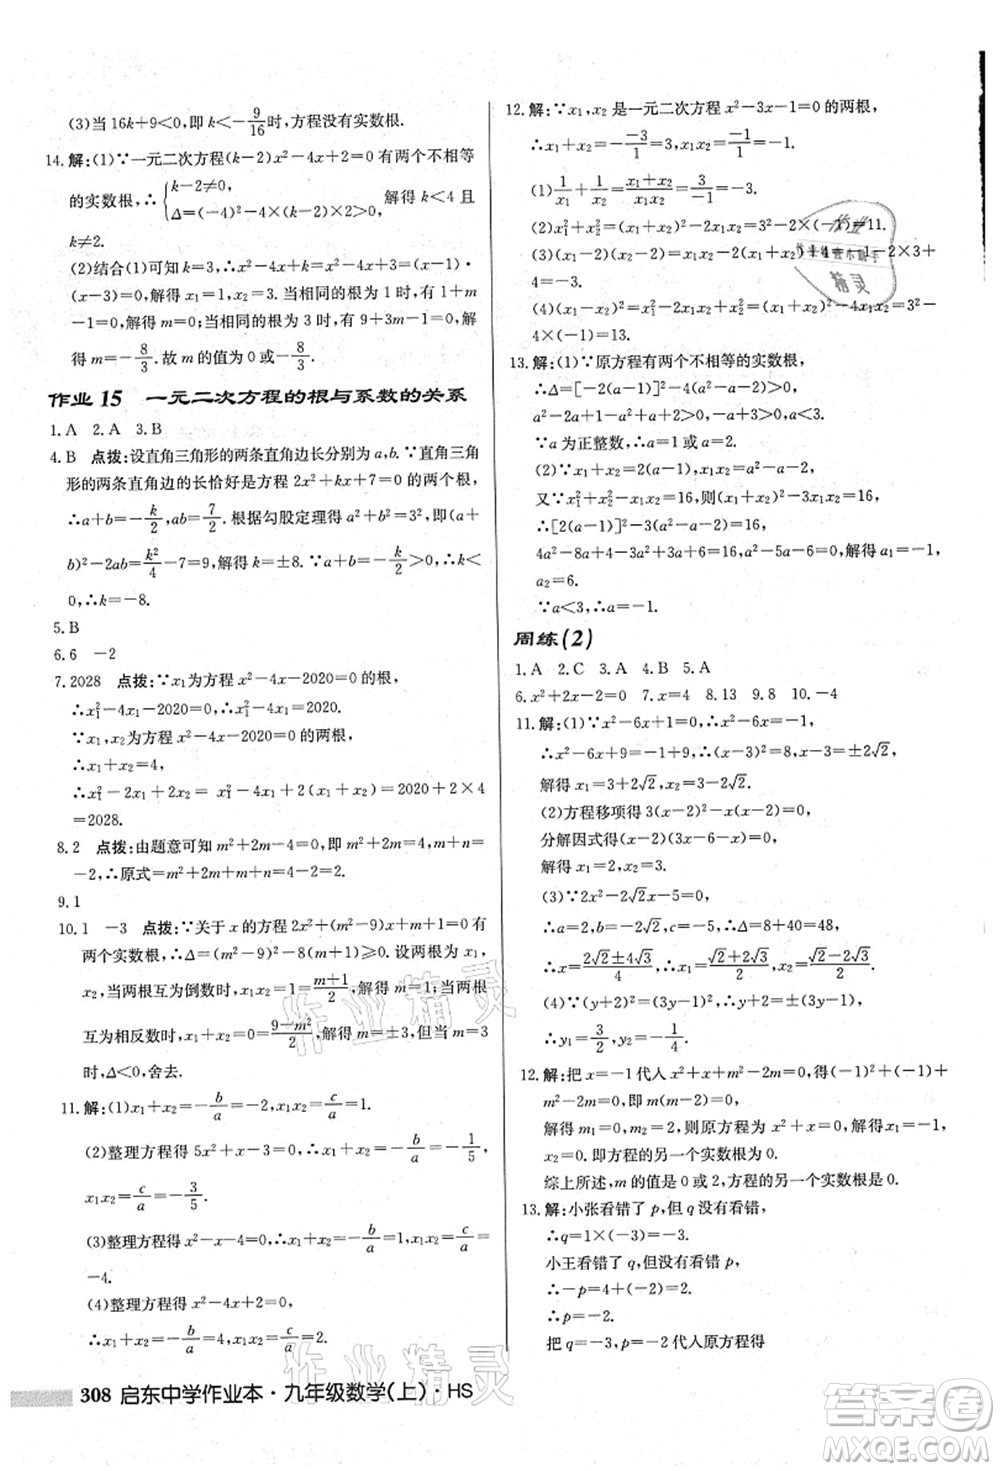 (3)当 16k+9<0,即 k<-9/16时,方程没有实数根.
14.解:(1)∵一元二次方程(k-2)x²-4x+1=0 有两个不相等
的实数根,∴{k-2≠0, Δ=(-4)²-4×(k-2)×1>0, 解得 k<4 且
k≠2.
(2)结合(1)可知 k=3,∴x²-4x+k=x²-4x+3=(x-1)·
(x-3)=0,解得 x₁=1,x₂=3.当相同的根为 1 时,有 1+m
-1=0,解得 m=0;当相同的根为 3 时,有 9+3m-1=0,解
得 m=-8/3.故 m 的值为 0 或-8/3.
作业 15 一元二次方程的根与系数的关系
1.A 2.A 3.B
4.B 点拨:设直角三角形的两条直角边长分别为 a,b.∵直角三角
形的两条直角边的长恰好是方程 2x²+kx+7=0 的两个根,
∴a+b=-k/2,ab=7/2.根据勾股定理得 a²+b²=3²,即(a+
b)²-2ab=k²/4-7=9,解得 k=±8.∵a+b=-k/2>0,∴k<
0,∴k=-8.
5.B
6.6 -2
7.2028 点拨:∵x₁为方程 x²-4x-2020=0 的根,
∴x₁²-4x₁-2020=0,∴x₁²-4x₁=2020.
∵x₁,x₂为方程 x²-4x-2020=0 的两根,
∴x₁+x₂=4,
∴x₁²-2x₁+2x₂=x₁²-4x₁+2(x₁+x₂)=2020+2×4=
2028.
8.2 点拨:由题意可知 m²+2m-4=0,m+n=-2,∴m²+2m=4,m+n
=-2,∴原式=m²+2m+m+n=4-2=2.
9.1
10.1 -3 点拨:∵关于 x 的方程 2x²+(m²-9)x+m+1=0 有
两个实数根,∴Δ=(m²-9)²-8(m+1)≥0.设两根为 x₁,
x₂,当两根互为倒数时,x₁x₂=1=(m+1)/2,解得 m=1;当两根
互为相反数时,x₁+x₂=0=(9-m²)/2,解得 m=±3,但当 m=3
时,Δ<0,舍去.
11.解:(1)x₁+x₂=-b/a=-2,x₁x₂=c/a=1.
(2)整理方程得 5x²+x-3=0,∴x₁+x₂=-b/a=-1/5,
x₁x₂=c/a=-3/5.
(3)整理方程得 x²-4=0,∴x₁+x₂=-b/a=0,x₁x₂=c/a=
-4.
(4)整理方程得 x²-4x+2=0,
∴x₁+x₂=-b/a=4,x₁x₂=c/a=2.
308 启东中学作业本·九年级数学(上)·HS
12.解:∵x₁,x₂ 是一元二次方程 x²-3x-1=0 的两根,
∴x₁+x₂=-(-3)/1=3,x₁x₂=-1/1=-1.
(1)1/x₁+1/x₂=(x₁+x₂)/(x₁x₂)=3/(-1)=-3.
(2)x₁²+x₂²=(x₁+x₂)²-2x₁x₂=3²-2×(-1)=11.
4=-3.
(4)(x₁-x₂)²=x₁²+x₂²-2x₁x₂=(x₁+x₂)²-4x₁x₂=3²-
4×(-1)=13.
13.解:(1)∵原方程有两个不相等的实数根,
∴Δ=[-2(a-1)]²-4(a²-a-2)>0,
a²-2a+1-a²+a+2>0,∴a<3.
∵a 为正整数,∴a=1,2.
(2)∵x₁+x₂=2(a-1),x₁x₂=a²-a-2,
又∵x₁²+x₂²-x₁x₂=16,则(x₁+x₂)²-3x₁x₂=16,
∴[2(a-1)]²-3(a²-a-2)=16,
4a²-8a+4-3a²+3a+6=16,解得 a₁=-1,
a₂=6.
∵a<3,∴a=-1.
周练(2)
1.A 2.C 3.A 4.B 5.A
6.x²+2x-2=0 7.x=4 8.13 9.8 10.-4
11.解:(1)∵x²-6x+1=0,∴x²-6x=-1,
∴x²-6x+9=-1+9,∴(x-3)²=8,∴x-3=±2√2,
解得 x₁=3+2√2,x₂=3-2√2.
(2)方程移项得 3(x-2)²-x(x-2)=0,
分解因式得(x-2)(3x-6-x)=0,
解得 x₁=2,x₂=3.
(3)∵x²-2√2x-5=0,
∴a=1,b=-2√2,c=-5,Δ=8+40=48,
∴x=(2√2±4√3)/2,∴x₁=√2+2√3,x₂=√2-2√3.
(4)∵(y+2)²=(3y-1)²,∴y+2=±(3y-1),
∴y₁=3/2,y₂=-1/4.
12.解:把 x=-1 代入 x²+x+m²-2m=0,得(-1)²+(-1)+
m²-2m=0,
解得 m₁=0,m₂=2,则原方程为 x²+x=0,解得 x₁=-1,
x₂=0.即方程的另一个实数根为 0.
综上所述,m 的值是 0 或 2,方程的另一个实数根是 0.
13.解:小张看错了 p,但 q 没有看错,
∴q=1×(-3)=-3.
小王看错了 q,但没有看错 p,
∴-p=-2+4=2,
∴p=-2.
把 q=-3,p=-2 代入原方程得
作业精灵
作业精灵
答案圈
MXQE.COM